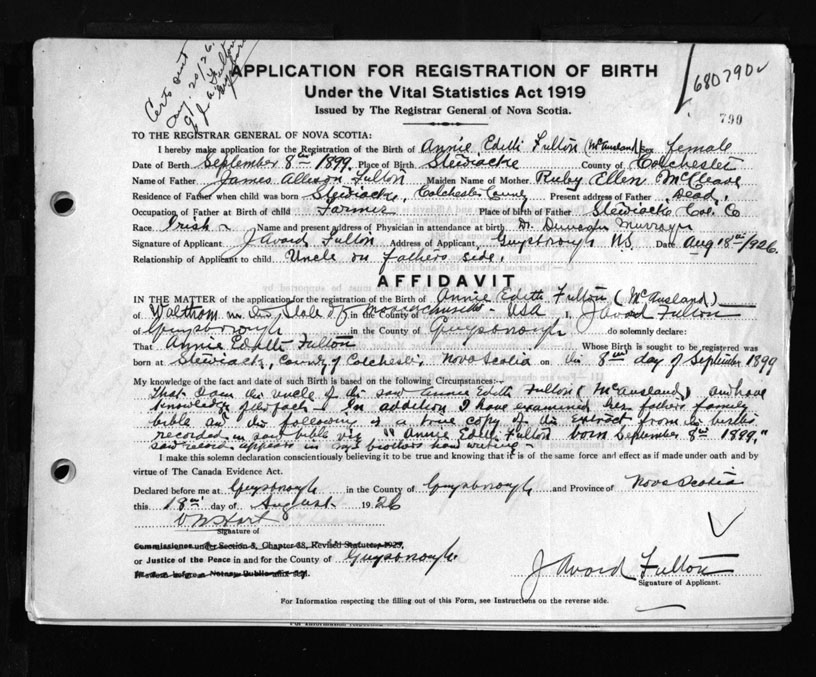 Certs sent
Aug. 20/26
J. A. Fulton
Guysboro
APPLICATION FOR REGISTRATION OF BIRTH
Under the Vital Statistics Act 1919
Issued by The Registrar General of Nova Scotia.
680790
790
TO THE REGISTRAR GENERAL OF NOVA SCOTIA:
I hereby make application for the Registration of the Birth of Annie Edith Fulton (McAusland) Sex female
Date of Birth September 8th 1899. Place of Birth Stewiacke County of Colchester
Name of Father James Allison Fulton Maiden Name of Mother Ruby Ellen
Residence of Father when child was born Stewiacke, Colchester County Present address of Father Dead.
Occupation of Father at Birth of child Farmer Place of birth of Father Stewiacke Col. Co
Race Irish Name and present address of Physician in attendance at birth Dr.
Signature of Applicant J Avard Fulton Address of Applicant Guysborough N.S. Date Aug 18th/1926.
Relationship of Applicant to child Uncle on fathers side.
AFFIDAVIT
IN THE MATTER of the application for the registration of the Birth of Annie Edith Fulton (McAusland)
of Waltham in the State of in the County of Massachusetts - USA I, J Avard Fulton
of Guysborough in the County of Guysborough do solemnly declare:
That Annie Edith Fulton Whose Birth is sought to be registered was
born at Stewiacke, County of Colchester, Nova Scotia on the 8th day of September 1899
My knowledge of the fact and date of such Birth is based on the following Circumstances:—
That I am the uncle of the said Annie Edith Fulton (McAusland) and have
knowledge of the facts. In addition I have examined her fathers family
bible and the following is a true copy of the extract from the births
recorded in said bible viz "Annie Edith Fulton born September 8th 1899."
said record appears in my brothers handwriting
I make this solemn declaration conscientiously believing it to be true and knowing that it is of the same force and effect as if made under oath and by
virtue of The Canada Evidence Act.
Declared before me at Guysborough in the County of Guysborough and Province of Nova Scotia
this 18th day of August 1926
Signature of
Commissioner under Section 8, Chapter 38, Revised Statutes, 1923,
or Justice of the Peace in and for the County of Guysborough
J Avard Fulton
Signature of Applicant.
For Information respecting the filling out of this Form, see Instructions on the reverse side.